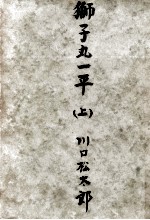 獅子丸一平
(上)
川口松太郎